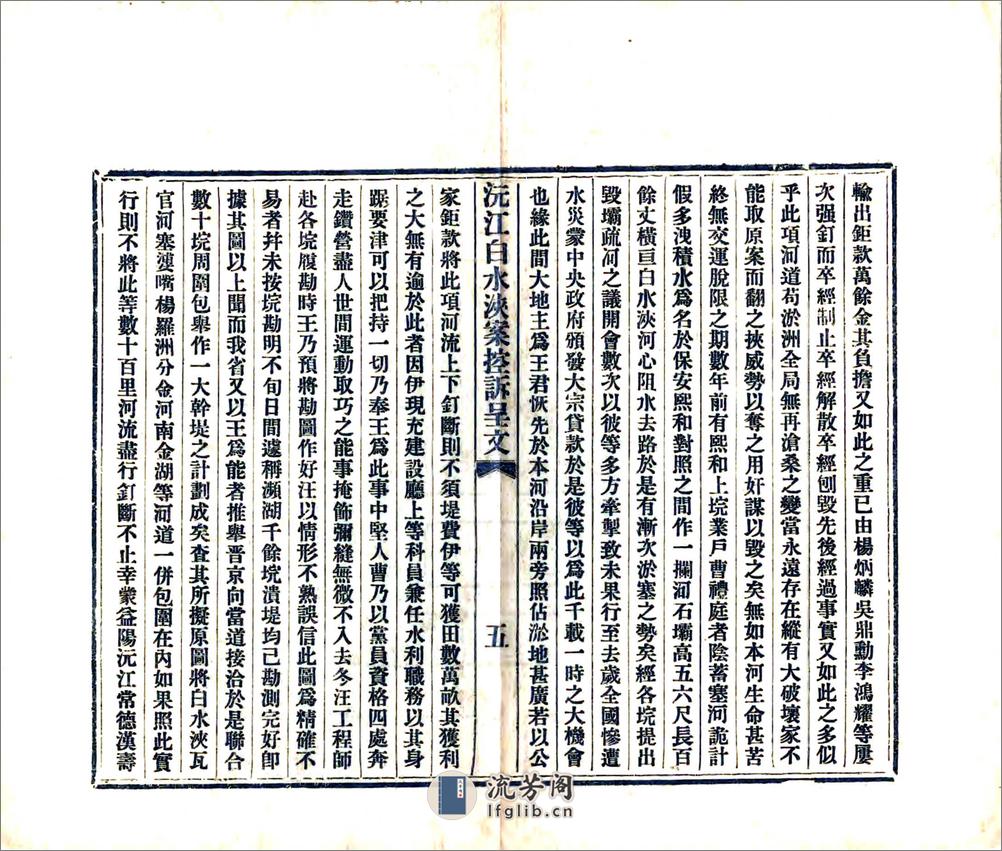 輸出鉅款萬餘金其負擔又如此之重已由楊炳麟吳鼎勳李鴻耀等屢
次强釘而卒經制止卒經解散卒經刨毀先後經過事實又如此之多似
乎此項河道苟淤洲全局無再滄桑之變當永遠存在縱有大破壞家不
能取原案而翻之挾威勢以奪之用奸謀以毀之矣無如本河生命甚苦
終無交運脫限之期數年前有熙和上垸業戶曹禮庭者陰蓄塞河詭計
假多洩積水爲名於保安熙和對照之間作一攔河石壩高五六尺長百
餘丈橫亘白水浹河心阻水去路於是有漸次淤塞之勢矣經各垸提出
毀壩疏河之議開會數次以彼等多方牽掣致未果行至去歲全國慘遭
水災蒙中央政府頒發大宗貸款於是彼等以爲此千載一時之大機會
也緣此間大地主爲王君恢先於本河沿岸兩旁照佔淤地甚廣若以公
沅江白水浹案控訴呈文
五
家鉅款將此項河流上下釘斷則不須堤費伊等可獲田數萬畝其獲利
之大無有逾於此者因伊現充建設廳上等科員兼任水利職務以其身
踞要津可以把持一切乃奉王爲此事中堅人曹乃以黨員資格四處奔
走鑽營盡人世間運動取巧之能事掩飾彌縫無微不入去冬汪工程師
赴各垸履勘時王乃預將勘圖作好汪以情形不熟誤信此圖爲精確不
易者幷未按垸勘明不旬日間遽稱瀕湖千餘垸潰堤均已勘測完好卽
據其圖以上聞而我省又以王爲能者推舉晋京向當道接洽於是聯合
數十垸周圍包舉作一大幹堤之計劃成矣查其所擬原圖將白水浹瓦
官河塞婆嘴楊羅洲分金河南金湖等河道一併包圍在內如果照此實
行則不將此等數十百里河流盡行釘斷不止幸衆益陽沅江常德漢壽
流芳阁
lfglib.cn